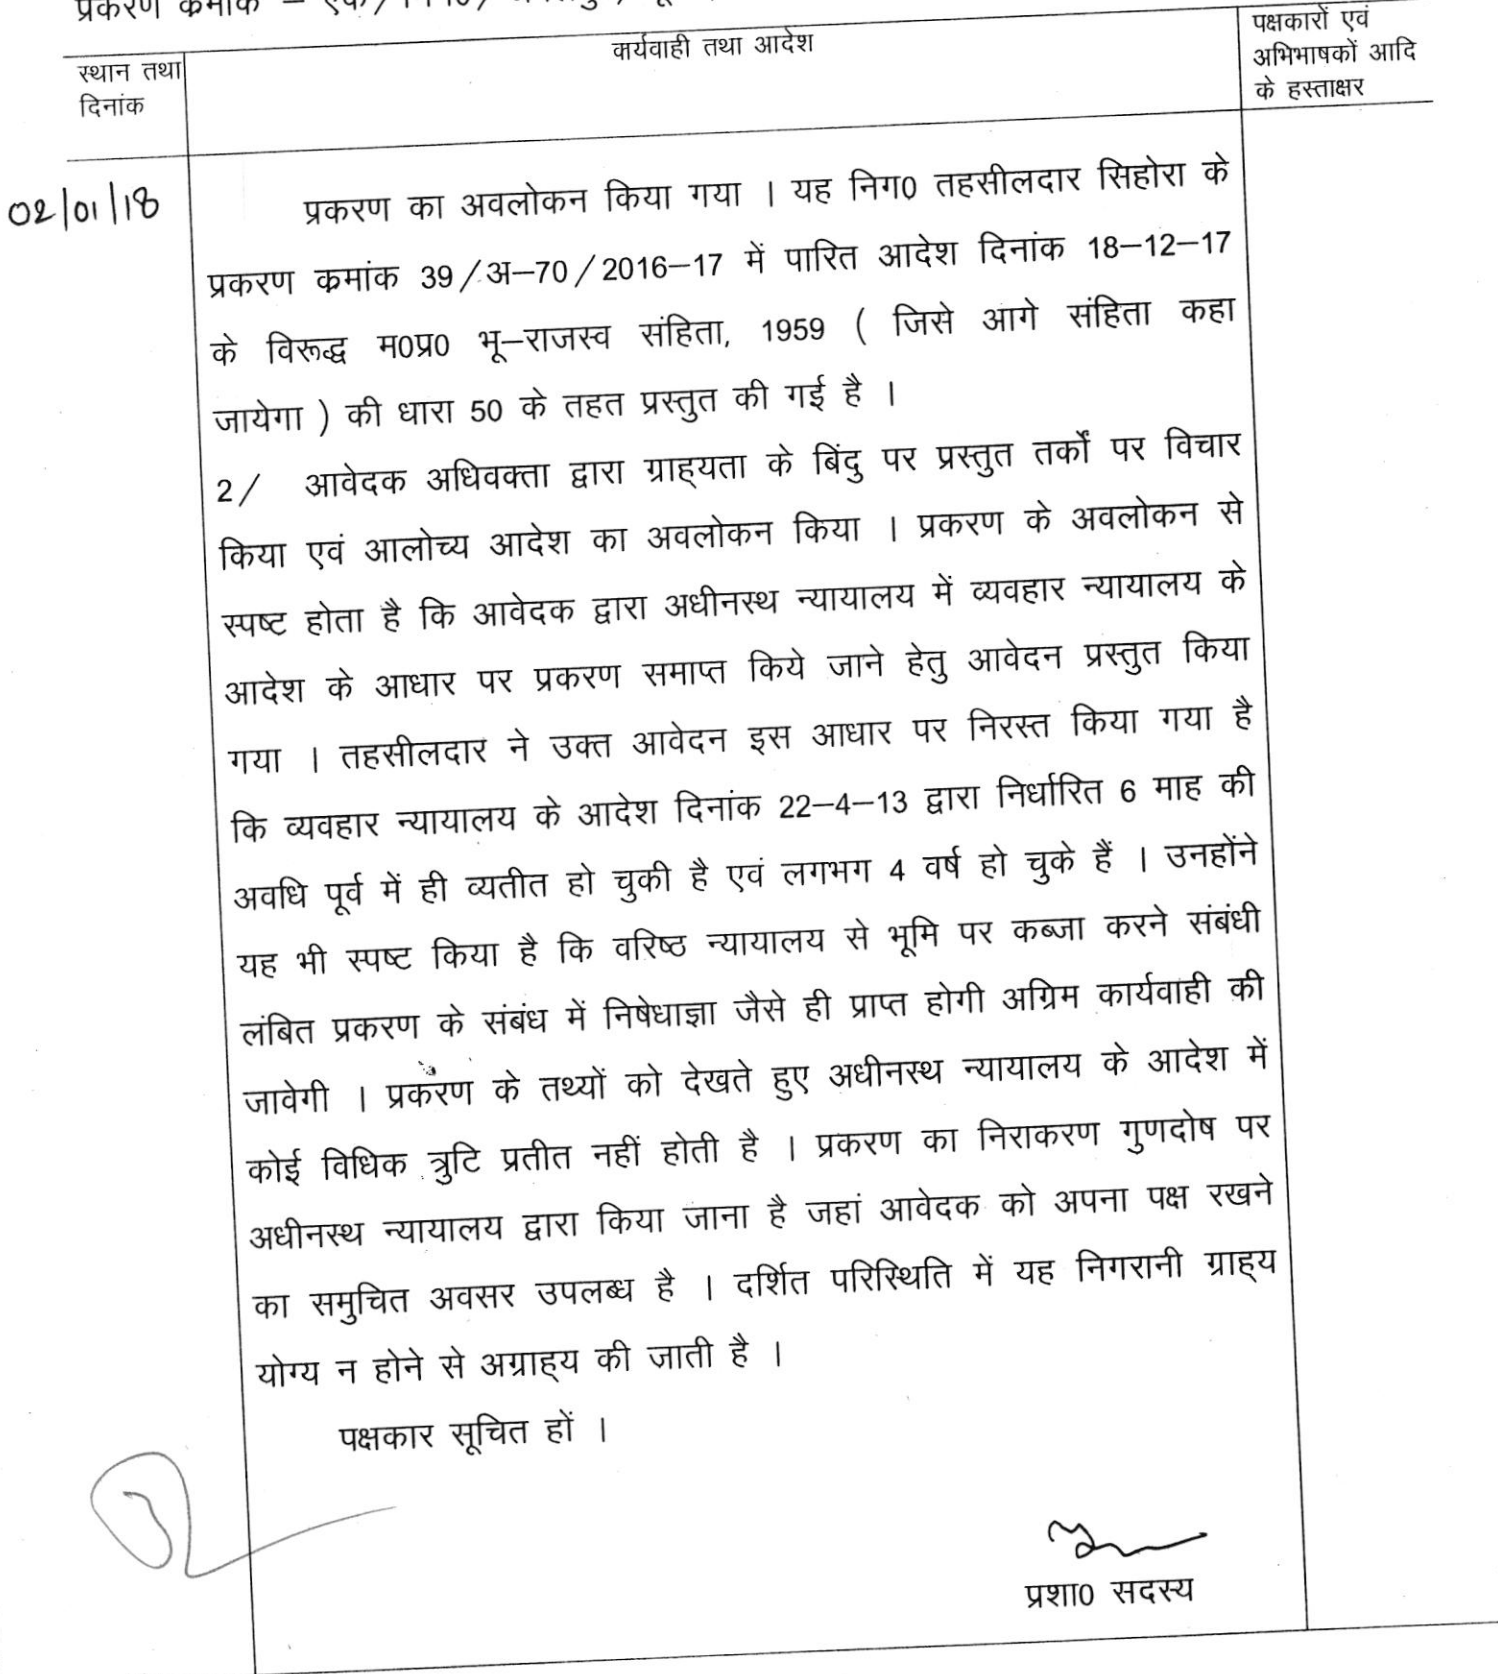 प्रकरण कमांक –
स्थान तथा
दिनांक
कार्यवाही तथा आदेश
पक्षकारों एवं
अभिभाषकों आदि
के हस्ताक्षर
02/01/18
प्रकरण का अवलोकन किया गया । यह निग0 तहसीलदार सिहोरा के
प्रकरण कमांक 39/अ–70/2016–17 में पारित आदेश दिनांक 18–12–17
के विरूद्ध म0प्र0 भू–राजस्व संहिता, 1959 ( जिसे आगे संहिता कहा
जायेगा ) की धारा 50 के तहत प्रस्तुत की गई है ।
2/ आवेदक अधिवक्ता द्वारा ग्राह्यता के बिंदु पर प्रस्तुत तर्कों पर विचार
किया एवं आलोच्य आदेश का अवलोकन किया । प्रकरण के अवलोकन से
स्पष्ट होता है कि आवेदक द्वारा अधीनस्थ न्यायालय में व्यवहार न्यायालय के
आदेश के आधार पर प्रकरण समाप्त किये जाने हेतु आवेदन प्रस्तुत किया
गया । तहसीलदार ने उक्त आवेदन इस आधार पर निरस्त किया गया है
कि व्यवहार न्यायालय के आदेश दिनांक 22–4–13 द्वारा निर्धारित 6 माह की
अवधि पूर्व में ही व्यतीत हो चुकी है एवं लगभग 4 वर्ष हो चुके हैं । उनहोंने
यह भी स्पष्ट किया है कि वरिष्ठ न्यायालय से भूमि पर कब्जा करने संबंधी
लंबित प्रकरण के संबंध में निषेधाज्ञा जैसे ही प्राप्त होगी अग्रिम कार्यवाही की
जावेगी । प्रकरण के तथ्यों को देखते हुए अधीनस्थ न्यायालय के आदेश में
कोई विधिक त्रुटि प्रतीत नहीं होती है । प्रकरण का निराकरण गुणदोष पर
अधीनस्थ न्यायालय द्वारा किया जाना है जहां आवेदक को अपना पक्ष रखने
का समुचित अवसर उपलब्ध है । दर्शित परिस्थिति में यह निगरानी ग्राह्य
योग्य न होने से अग्राह्य की जाती है ।
पक्षकार सूचित हों ।
प्रशा0 सदस्य